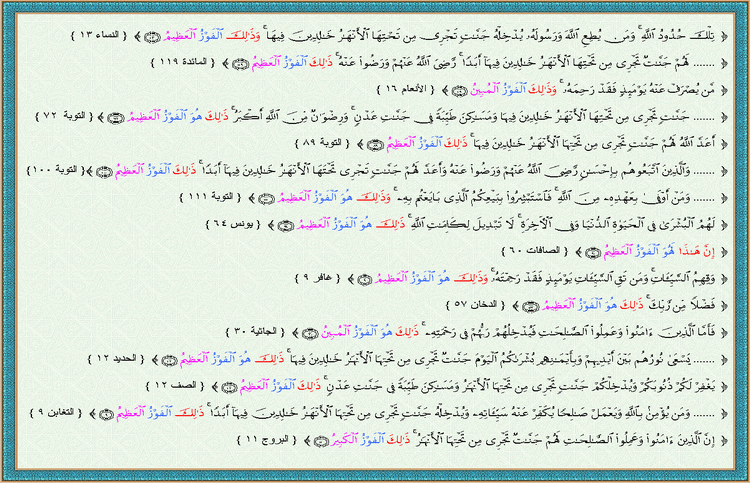 ﴿ تِلْكَ حُدُودُ ٱللَّهِ ۚ وَمَن يُطِعِ ٱللَّهَ وَرَسُولَهُۥ يُدْخِلْهُ جَنَّٰتٍ تَجْرِى مِن تَحْتِهَا ٱلْأَنْهَٰرُ خَٰلِدِينَ فِيهَا ۚ وَذَٰلِكَ ٱلْفَوْزُ ٱلْعَظِيمُ ﴾ { النساء ١٣ }
﴿ ....... لَهُمْ جَنَّٰتٌ تَجْرِى مِن تَحْتِهَا ٱلْأَنْهَٰرُ خَٰلِدِينَ فِيهَآ أَبَدًا ۚ رَّضِىَ ٱللَّهُ عَنْهُمْ وَرَضُوا۟ عَنْهُ ۚ ذَٰلِكَ ٱلْفَوْزُ ٱلْعَظِيمُ ﴾ { المائدة ١١٩ }
﴿ مَّن يُصْرَفْ عَنْهُ يَوْمَئِذٍ فَقَدْ رَحِمَهُۥ ۚ وَذَٰلِكَ ٱلْفَوْزُ ٱلْمُبِينُ ﴾ { الأنعام ١٦ }
﴿ ....... جَنَّٰتٍ تَجْرِى مِن تَحْتِهَا ٱلْأَنْهَٰرُ خَٰلِدِينَ فِيهَا وَمَسَٰكِنَ طَيِّبَةً فِى جَنَّٰتِ عَدْنٍ ۚ وَرِضْوَٰنٌ مِّنَ ٱللَّهِ أَكْبَرُ ۚ ذَٰلِكَ هُوَ ٱلْفَوْزُ ٱلْعَظِيمُ ﴾ { التوبة ٧٢ }
﴿ أَعَدَّ ٱللَّهُ لَهُمْ جَنَّٰتٍ تَجْرِى مِن تَحْتِهَا ٱلْأَنْهَٰرُ خَٰلِدِينَ فِيهَا ۚ ذَٰلِكَ ٱلْفَوْزُ ٱلْعَظِيمُ ﴾ { التوبة ٨٩ }
﴿ ....... وَٱلَّذِينَ ٱتَّبَعُوهُم بِإِحْسَٰنٍ رَّضِىَ ٱللَّهُ عَنْهُمْ وَرَضُوا۟ عَنْهُ وَأَعَدَّ لَهُمْ جَنَّٰتٍ تَجْرِى تَحْتَهَا ٱلْأَنْهَٰرُ خَٰلِدِينَ فِيهَآ أَبَدًا ۚ ذَٰلِكَ ٱلْفَوْزُ ٱلْعَظِيمُ ﴾ { التوبة ١٠٠ }
﴿ ....... وَمَنْ أَوْفَىٰ بِعَهْدِهِۦ مِنَ ٱللَّهِ ۚ فَٱسْتَبْشِرُوا۟ بِبَيْعِكُمُ ٱلَّذِى بَايَعْتُم بِهِۦ ۚ وَذَٰلِكَ هُوَ ٱلْفَوْزُ ٱلْعَظِيمُ ﴾ { التوبة ١١١ }
﴿ لَهُمُ ٱلْبُشْرَىٰ فِى ٱلْحَيَوٰةِ ٱلدُّنْيَا وَفِى ٱلْءَاخِرَةِ ۚ لَا تَبْدِيلَ لِكَلِمَٰتِ ٱللَّهِ ۚ ذَٰلِكَ هُوَ ٱلْفَوْزُ ٱلْعَظِيمُ ﴾ { يونس ٦٤ }
﴿ إِنَّ هَٰذَا لَهُوَ ٱلْفَوْزُ ٱلْعَظِيمُ ﴾ { الصافات ٦٠ }
﴿ وَقِهِمُ ٱلسَّيِّـَٔاتِ ۚ وَمَن تَقِ ٱلسَّيِّـَٔاتِ يَوْمَئِذٍ فَقَدْ رَحِمْتَهُۥ ۚ وَذَٰلِكَ هُوَ ٱلْفَوْزُ ٱلْعَظِيمُ ﴾ { غافر ٩ }
﴿ فَضْلًا مِّن رَّبِّكَ ۚ ذَٰلِكَ هُوَ ٱلْفَوْزُ ٱلْعَظِيمُ ﴾ { الدخان ٥٧ }
﴿ فَأَمَّا ٱلَّذِينَ ءَامَنُوا۟ وَعَمِلُوا۟ ٱلصَّٰلِحَٰتِ فَيُدْخِلُهُمْ رَبُّهُمْ فِى رَحْمَتِهِۦ ۚ ذَٰلِكَ هُوَ ٱلْفَوْزُ ٱلْمُبِينُ ﴾ { الجاثية ٣٠ }
﴿ ....... يَسْعَىٰ نُورُهُم بَيْنَ أَيْدِيهِمْ وَبِأَيْمَٰنِهِم بُشْرَىٰكُمُ ٱلْيَوْمَ جَنَّٰتٌ تَجْرِى مِن تَحْتِهَا ٱلْأَنْهَٰرُ خَٰلِدِينَ فِيهَا ۚ ذَٰلِكَ هُوَ ٱلْفَوْزُ ٱلْعَظِيمُ ﴾ { الحديد ١٢ }
﴿ يَغْفِرْ لَكُمْ ذُنُوبَكُمْ وَيُدْخِلْكُمْ جَنَّٰتٍ تَجْرِى مِن تَحْتِهَا ٱلْأَنْهَٰرُ وَمَسَٰكِنَ طَيِّبَةً فِى جَنَّٰتِ عَدْنٍ ۚ ذَٰلِكَ ٱلْفَوْزُ ٱلْعَظِيمُ ﴾ { الصف ١٢ }
﴿ ....... وَمَن يُؤْمِنۢ بِٱللَّهِ وَيَعْمَلْ صَٰلِحًا يُكَفِّرْ عَنْهُ سَيِّـَٔاتِهِۦ وَيُدْخِلْهُ جَنَّٰتٍ تَجْرِى مِن تَحْتِهَا ٱلْأَنْهَٰرُ خَٰلِدِينَ فِيهَآ أَبَدًا ۚ ذَٰلِكَ ٱلْفَوْزُ ٱلْعَظِيمُ ﴾ { التغابن ٩ }
﴿ إِنَّ ٱلَّذِينَ ءَامَنُوا۟ وَعَمِلُوا۟ ٱلصَّٰلِحَٰتِ لَهُمْ جَنَّٰتٌ تَجْرِى مِن تَحْتِهَا ٱلْأَنْهَٰرُ ۚ ذَٰلِكَ ٱلْفَوْزُ ٱلْكَبِيرُ ﴾ { البروج ١١ }